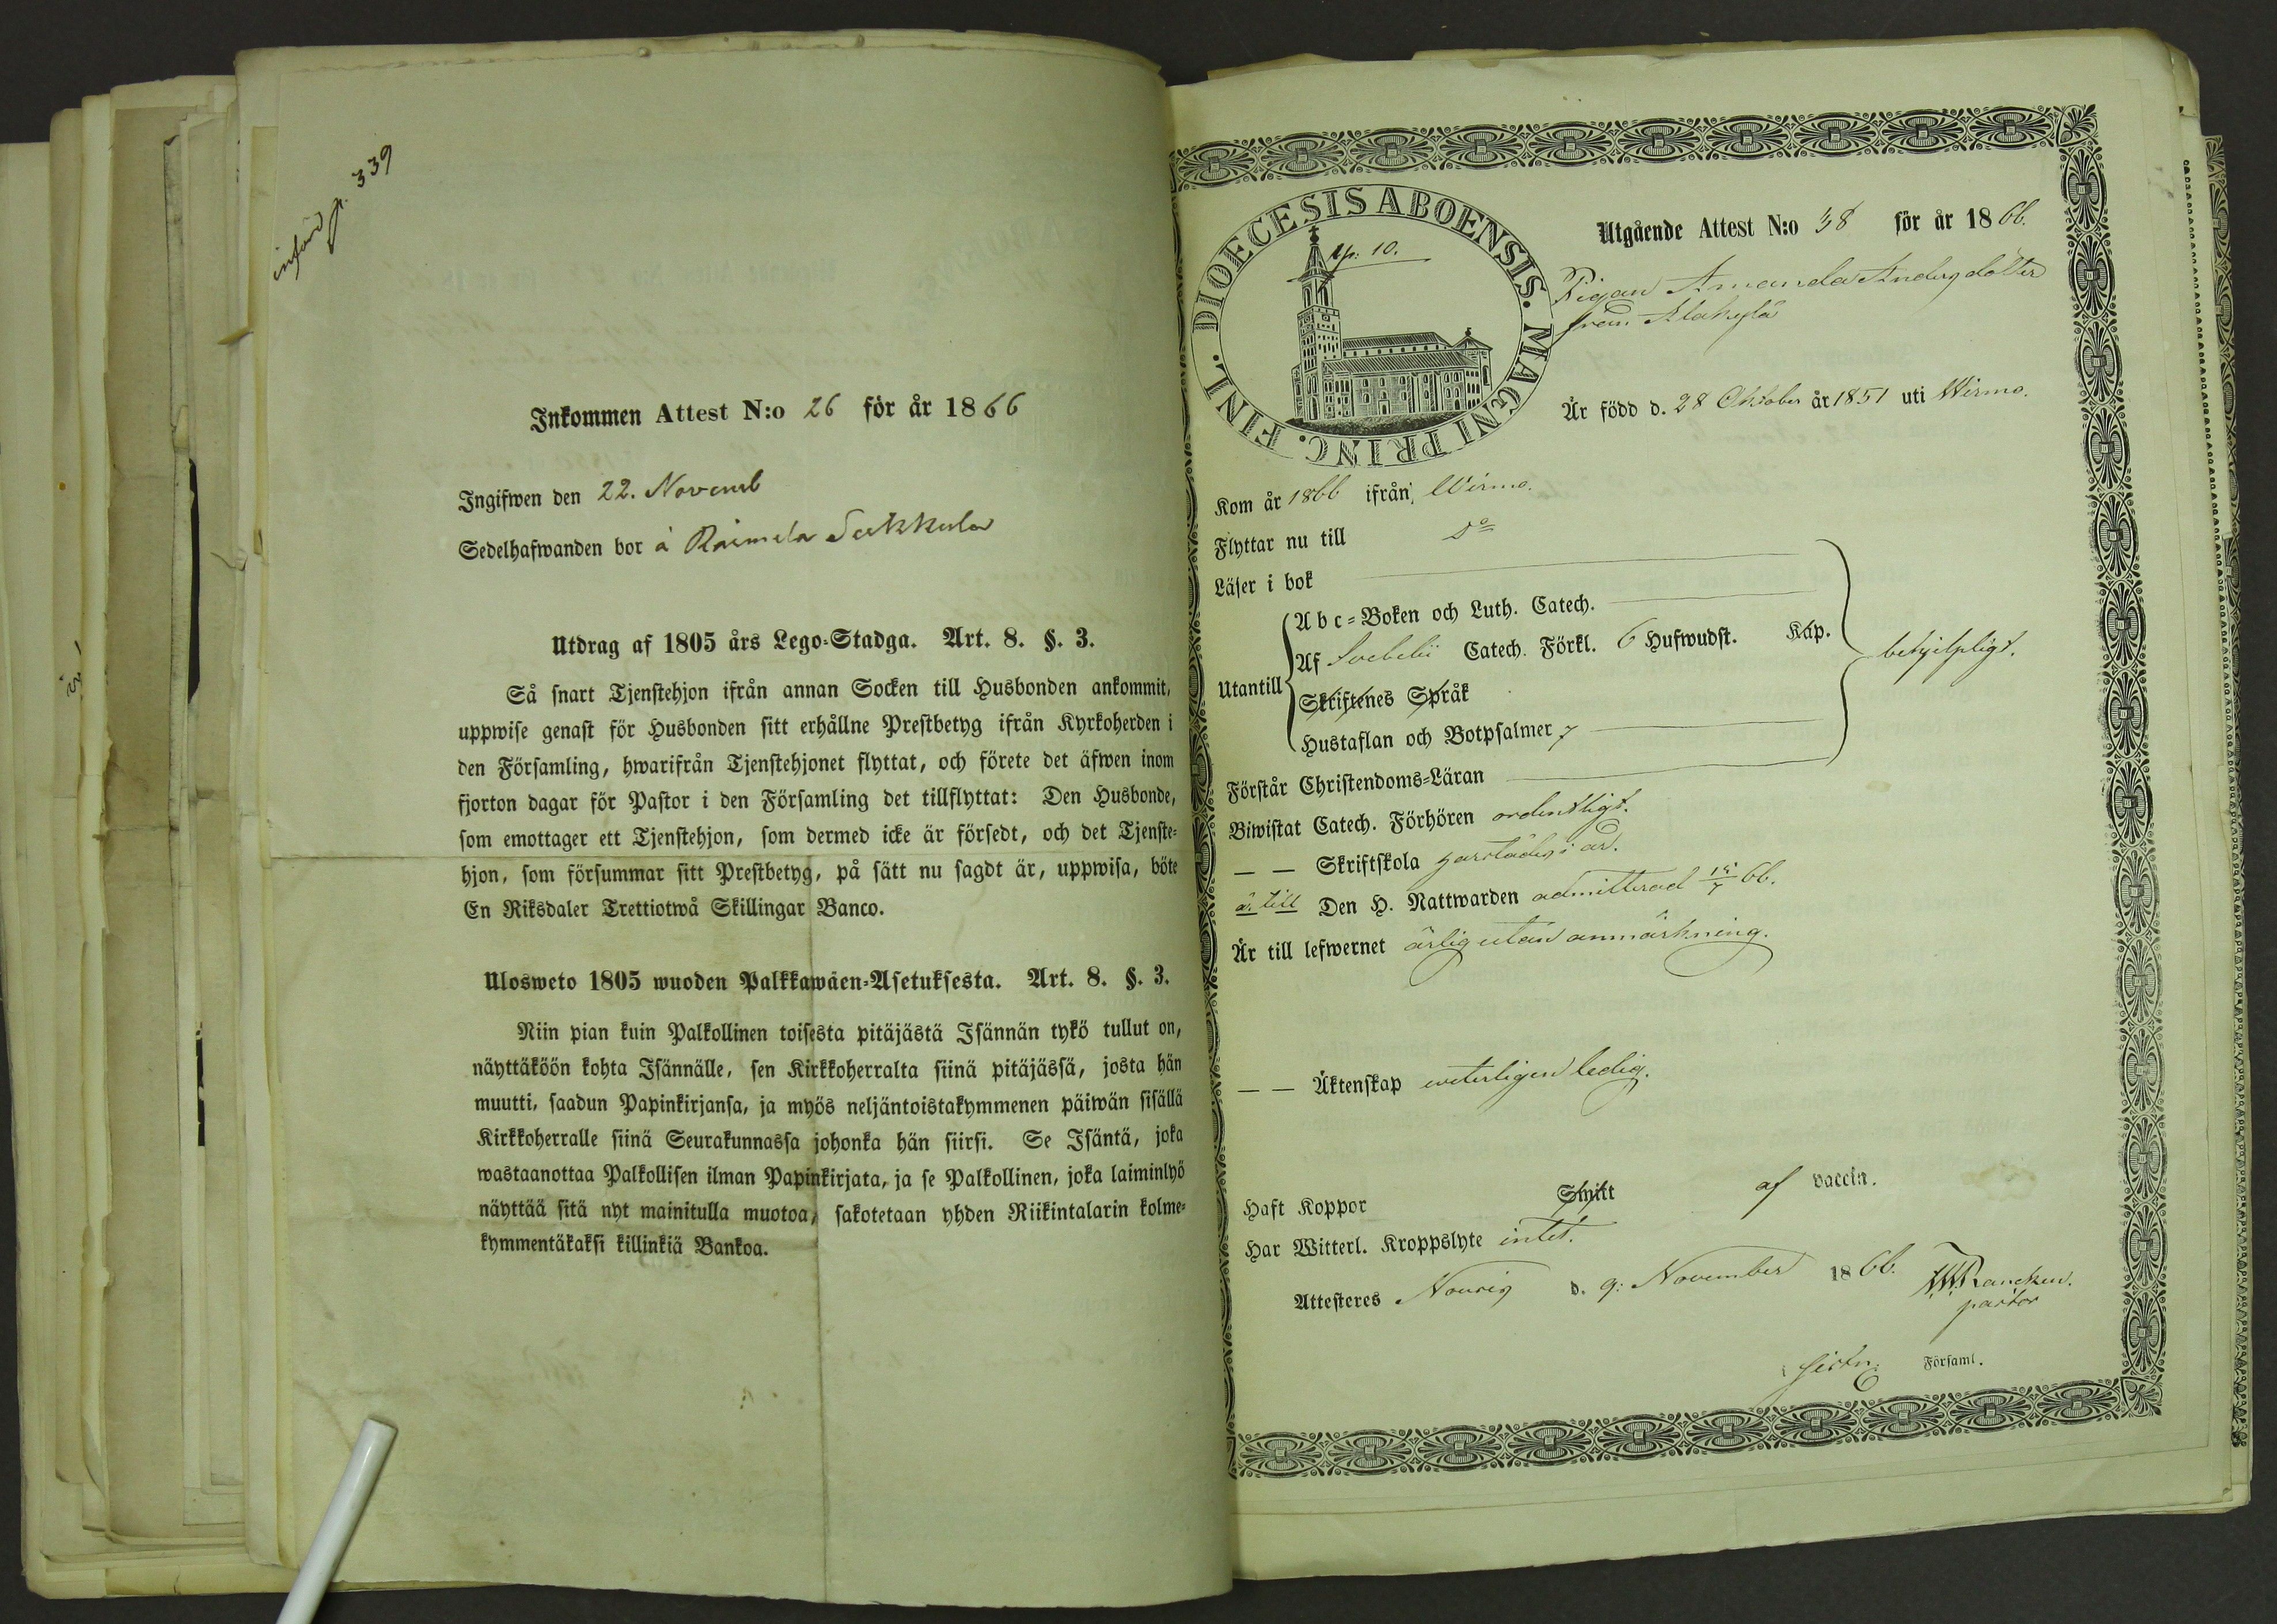 införd p. 339
Inkommen Attest N:o 26 för år 1866
Ingifwen den 22. Novemb
Sedelhafwanden bor å Raimela Sukkula
Utdrag af 1805 års Lego-Stadga. Art. 8. §. 3.
Så snart Tjenstehjon ifrån annan Socken till Husbonden ankommit,
uppwise genast för Husbonden sitt erhållne Prestbetyg ifrån Kyrkoherden i
den Församling, hwarifrån Tjenstehjonet flyttat, och förete det äfwen inom
fjorton dagar för Pastor i den Församling det tillflyttat: Den Husbonde,
som emottager ett Tjenstehjon, som dermed icke är försedt, och det Tjenste-
hjon, som försummar sitt Prestbetyg, på sätt nu sagdt är, uppwisa, böte
En Riksdaler Trettiotwå Skillingar Banco.
Ulosweto 1805 wuoden Palkkawäen-Asetuksesta. Art. 8. §. 3.
Niin pian kuin Palkollinen toisesta pitäjästä Isännän tykö tullut on,
näyttäköön kohta Isännälle, sen Kirkkoherralta siinä pitäjässä, josta hän
muutti, saadun Papinkirjansa, ja myös neljäntoistakymmenen päiwän sisällä
Kirkkoherralle siinä Seurakunnassa johonka hän siirsi. Se Isäntä, joka
wastaanottaa Palkollisen ilman Papinkirjata, ja se Palkollinen, joka laiminlyö
näyttää sitä nyt mainitulla muotoa, sakotetaan yhden Riikintalarin kolme-
kymmentäkaksi killinkiä Bankoa.
DIOECESIS ABOENSIS. MAGNI PRINC. FINL.
10.
Utgående Attest N:o 38 för år 1866.
Pigan Amanda Andersdotter
från Alakylä
Är född d. 28 Oktober år 1851 uti Wirmo.
Kom år 1866 ifrån Wirmo.
Flyttar nu till d:o
Läser i bok
Utantill
Abc-Boken och Luth. Catech.
Af Svebelii Catech. Förkl. 6 Hufwudst. Kap.
Skriftenes Språk
Hustaflan och Botpsalmer 7
behjelpligt.
Förstår Christendoms-Läran
Biwistat Catech. Förhören ordentligt.
— — Skriftskola i år.
är till Den H. Nattwarden admitterad 66.
Är till lefwernet ärlig utan anmärkning.
— — Äktenskap weterligen ledig.
Haft Koppor Skyitt af vaccin.
Har Witterl. Kroppslyte intet.
Attesteres Nousis d. 9: November 1866. Rancken.
pastor
Församl.